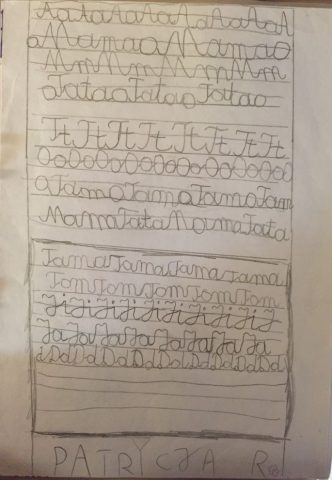 AataAataAataAataA
aMamaoMamao
MmMmMmMmMm
TataoTataoTatao
TtTtTtTtTtTtTtTt
OoOoOoOoOoOoOoOo
aTamaTamaTamaTam
MamaTataMamaTata
TamaTamaTamaTama
TomTomTomTomTom
JjJjJjJjJjJjJjJ
JaJaJaJaJaJaJa
dDdDdDdDdDdDdDd
PATRYCJA R